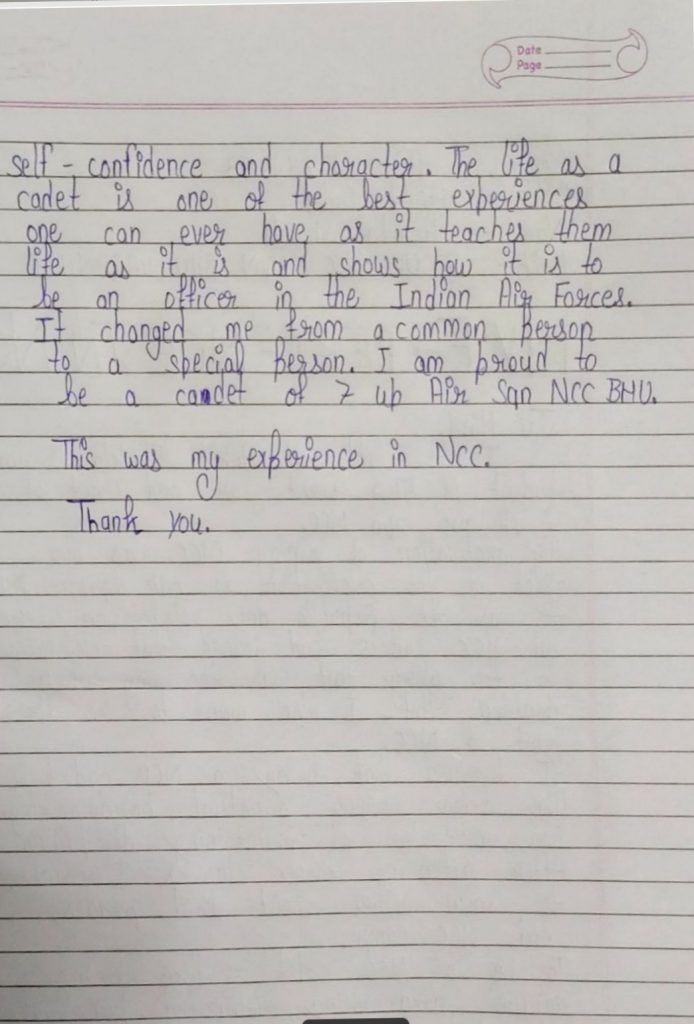 Date
Page
self - confidence and character. The life as a
cadet is one of the best experiences
one can ever have, as it teaches them
life as it is and shows how it is to
be an officer in the Indian Air Forces.
It changed me from a common person
to a special person. I am proud to
be a candet of 7 up Air Sqn NCC BHU.
This was my experience in NCC.
Thank you.